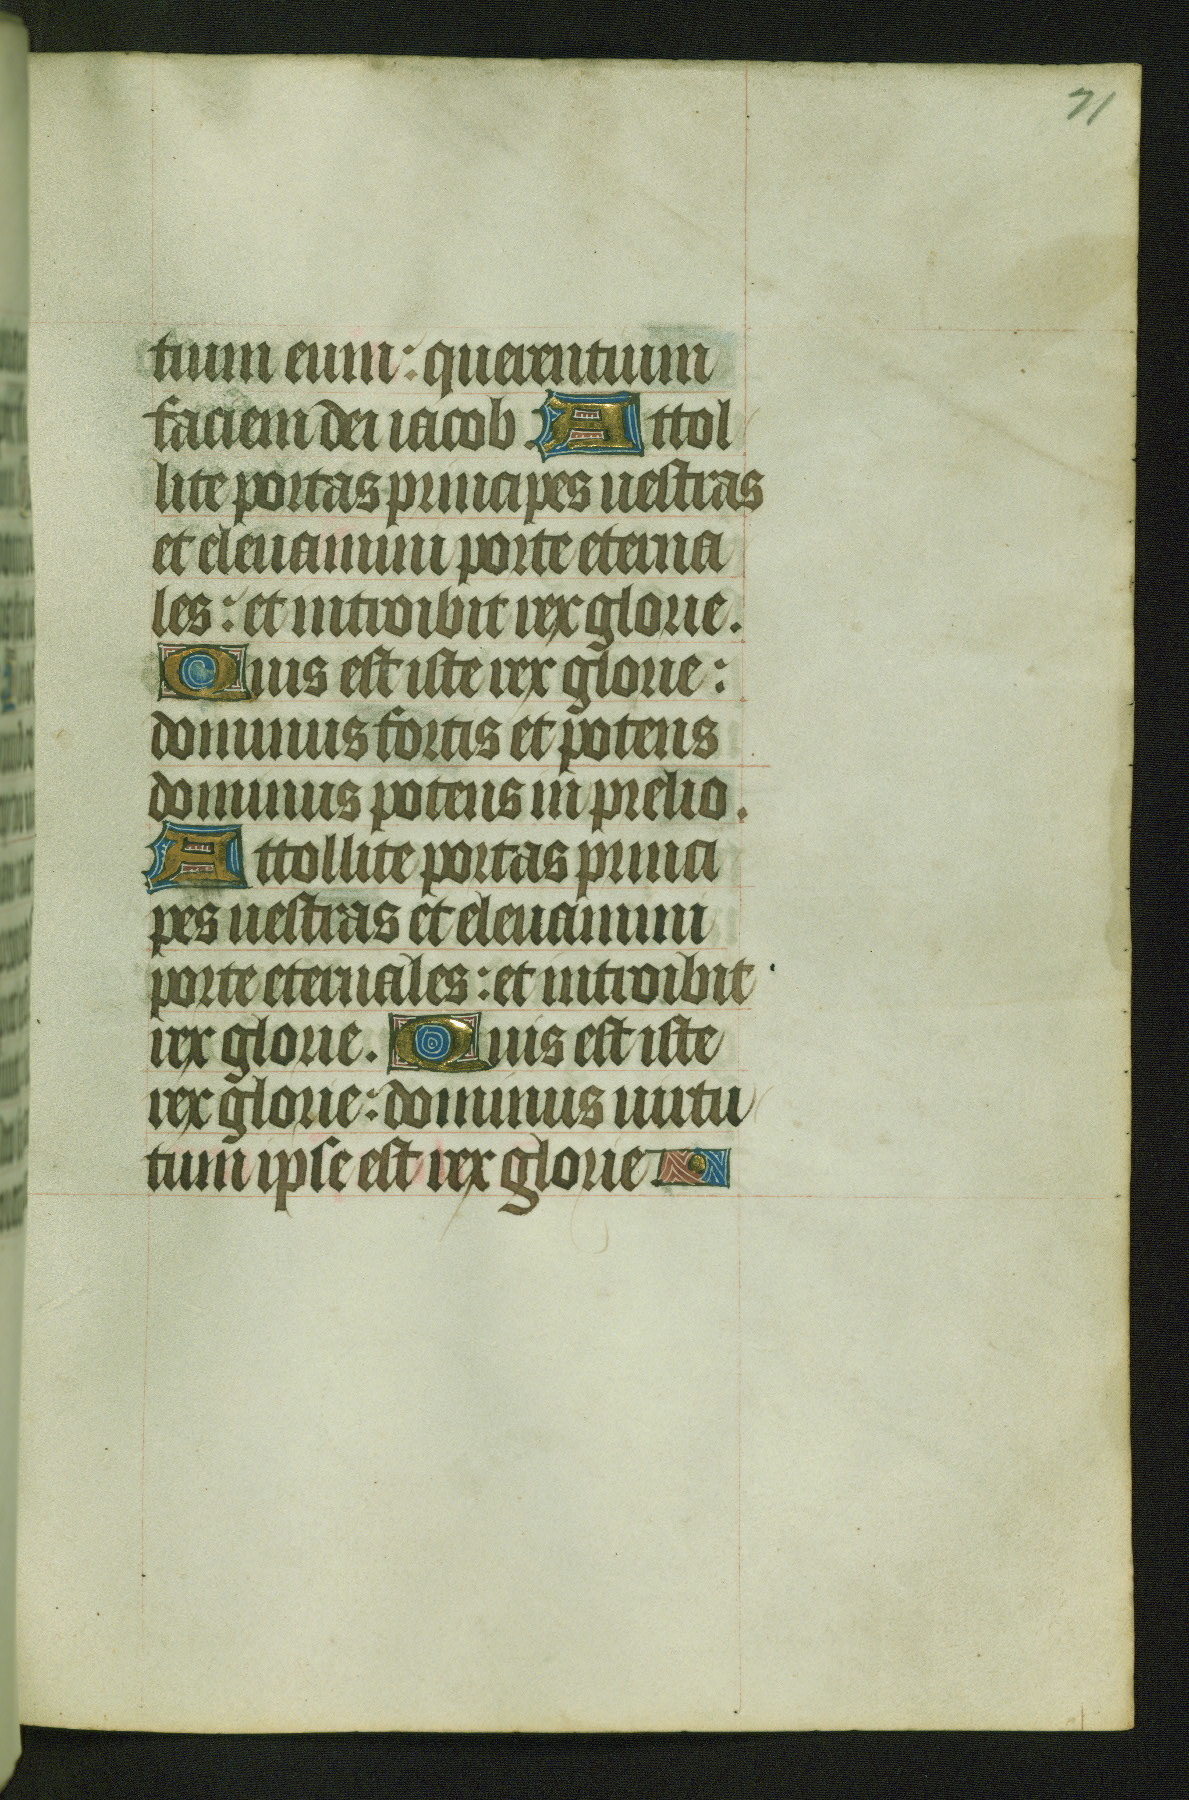 71
tium eum: querentium
faciem dei iacob. Attol
lite portas principes uestras
et eleuamini porte eterna
les: et introibit rex glorie.
Quis est iste rex glorie:
dominus fortis et potens
dominus potens in prelio.
Attollite portas princi
pes uestras et eleuamini
porte eternales: et introibit
rex glorie. Quis est iste
rex glorie: dominus uirtu
tum ipse est rex glorie.